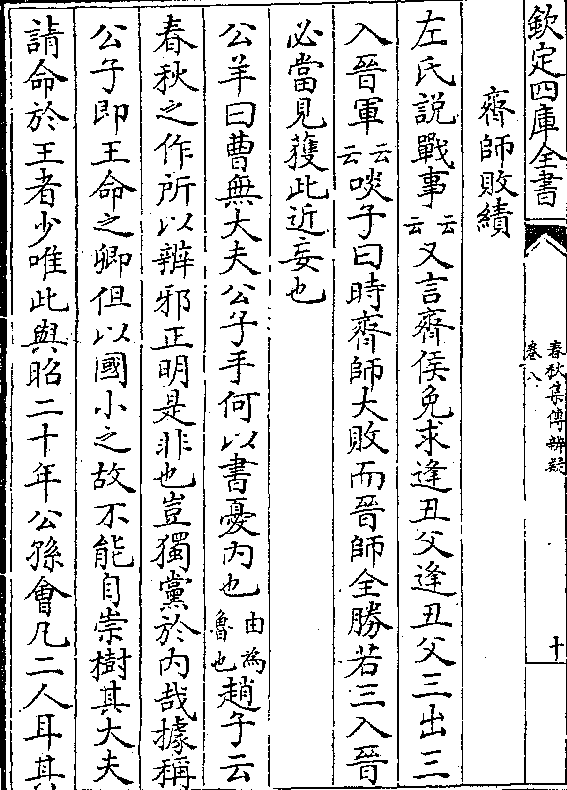 欽定四庫全書
春秋集傳辨疑
卷八
十
齊師敗績
左氏說戰事云云又言齊侯免求逢丑父逢丑父三出三
入晉軍云云啖子曰時齊師大敗而晉師全勝若三入晉
必當見獲此近妄也
公羊曰曹無大夫公子手何以書憂內也由為魯也趙子云
春秋之作所以辨邪正明是非也豈獨黨於內哉據稱
公子即王命之卿但以國小之故不能自崇樹其大夫
請命於王者少唯此與昭二十年公孫會凡二人耳其